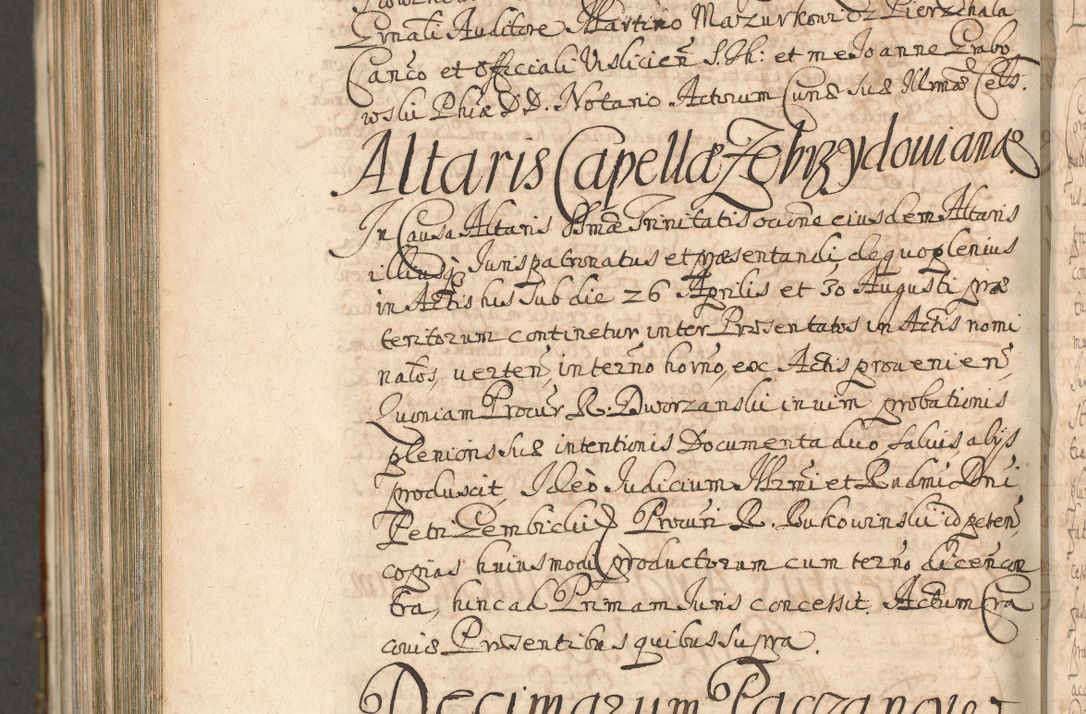 Ernali Auditore Martino Mazurkowicz Pierzchala
Canco et Officiali Vislicien S. Th: et me Joanne Grabo
wski Phiæ D D. Notario Actorum Curiæ suæ Illrmæ Cels.
Altaris Capellæ Zebrzydouianæ
In Causa Altaris SSmæ Trinitatis occone eiusdem Altaris
illiusq Jurispatronatus et præsentandi, de quo plenius
in Actis his sub die 26 Aprilis et 30 Augusti præ
teritorum continetur inter Præsentatos in Actis nomi
natos, uerten in termo horno, ex Actis prouenien,
Quoniam Procur R. Dworzanski in uim probationis
plenioris suæ intentionis Documenta duo, saluis alijs
produscit, Ideo Judicium Illrmi et Rndmi Dni
Petri Gembicki Procuri R. Bukowinski id peten
copias huiusmodi productorum cum termo dicen con
tra, hinc ad Primam Juris concessit. Actum Cra
couiæ Præsentibus quibus supra.
Decimarum Paczanouien